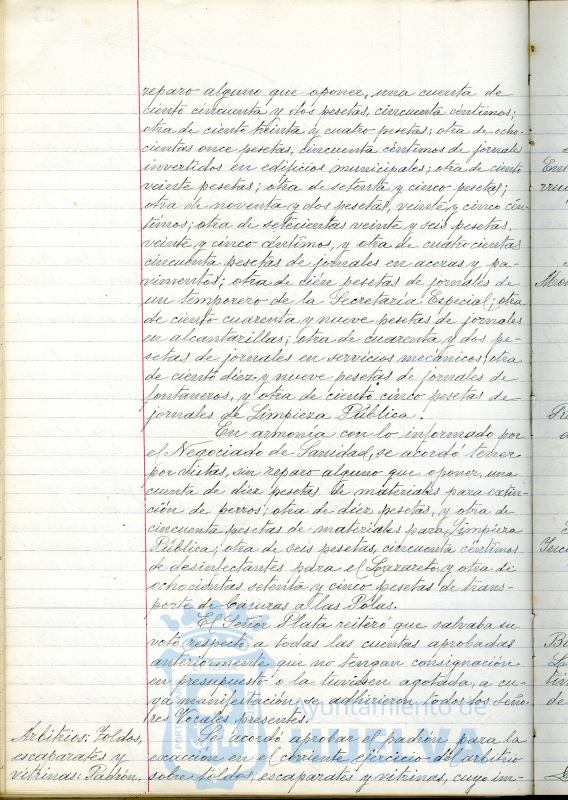 reparo alguno que oponer, una cuenta de
ciento cincuenta y dos pesetas, cincuenta céntimos;
otra de ciento treinta y cuatro pesetas; otra de ocho-
cientas once pesetas, cincuenta céntimos de jornales
invertidos en edificios municipales; otra de ciento
veinte pesetas; otra de setenta y cinco pesetas;
otra de noventa y dos pesetas, veinte y cinco cén-
timos; otra de setecientas veinte y seis pesetas,
veinte y cinco céntimos, y otra de cuatrocientas
cincuenta pesetas de jornales en aceras y pa-
vimentos; otra de cien pesetas de jornales de
un temporero de la Secretaría Especial; otra
de ciento cuarenta y nueve pesetas de jornales
en alcantarillas; otra de cuarenta y dos pe-
setas de jornales en servicios mecánicos; otra
de ciento diez y nueve pesetas de jornales de
fontaneros, y otra de ciento cinco pesetas de
jornales de Limpieza Pública.
En armonía con lo informado por
el Negociado de Sanidad, se acordó tener
por vistas, sin reparo alguno que oponer, una
cuenta de diez pesetas de materiales para extin-
ción de perros; otra de diez pesetas, y otra de
cincuenta pesetas de materiales para Limpieza
Pública; otra de seis pesetas, cincuenta céntimos
de desinfectantes para el Lazareto, y otra de
ochocientas setenta y cinco pesetas de trans-
porte de basuras a las Pólas.
El Señor Plata reiteró que salvaba su
voto respecto a todas las cuentas aprobadas
anteriormente que no tengan consignación
en presupuesto o la tuviesen agotada, a cu-
ya manifestación se adhirieron todos los Seño-
res Vocales presentes.
Ayuntamiento de
HUELVA
Arbitrios: Toldos,
escaparates y
vitrinas: Padrón.
Se acordó aprobar el padrón para la
exacción en el corriente ejercicio del arbitrio
sobre toldos, escaparates y vitrinas, cuyo im-